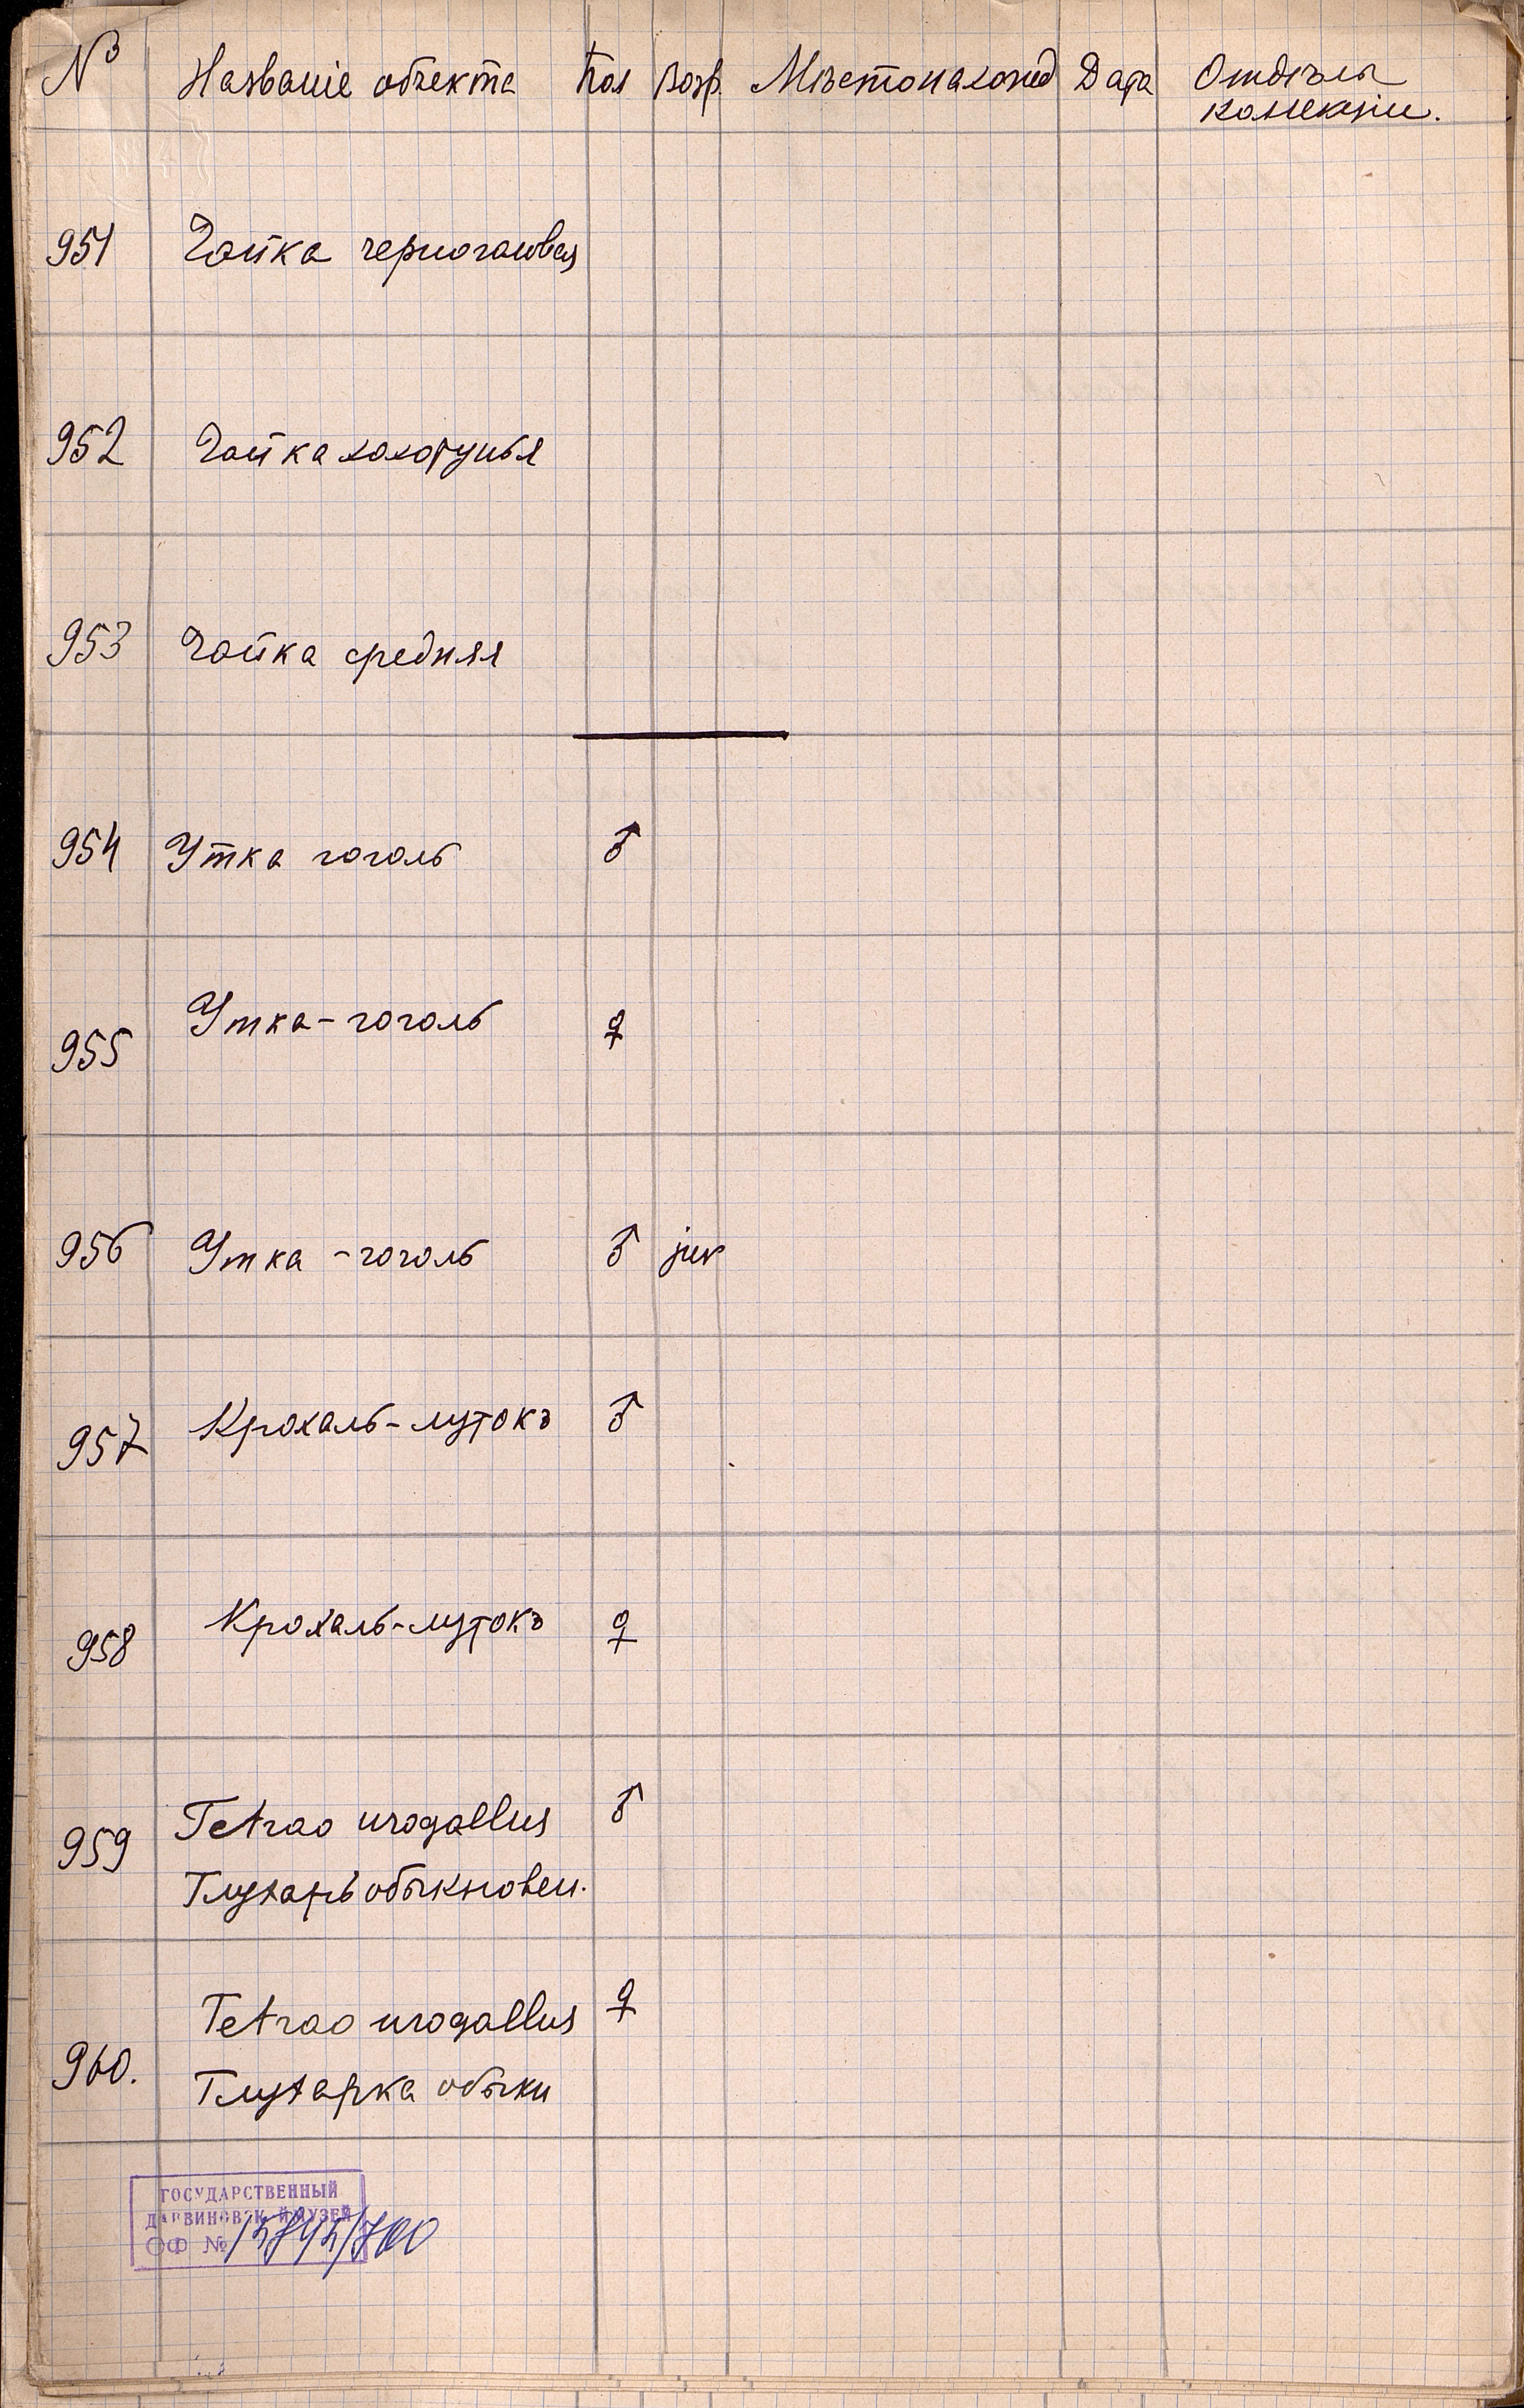 № Названіе объекта Пол Возр. Мѣстонахожд Дата Отдѣлы
коллекціи.
951 Чайка черноголовая
952 Чайка хохотунья
953 Чайка средняя
954 Утка гоголь ♂
955 Утка-гоголь ♀
956 Утка-гоголь ♂ juv
957 Крохаль-лутокъ ♂
958 Крохаль-лутокъ ♀
959 Tetrao urogallus ♂
Глухарь обыкновен.
960. Tetrao urogallus ♀
Глухарка обыкн
ГОСУДАРСТВЕННЫЙ
ДАРВИНОВСКИЙ МУЗЕЙ
ОФ №